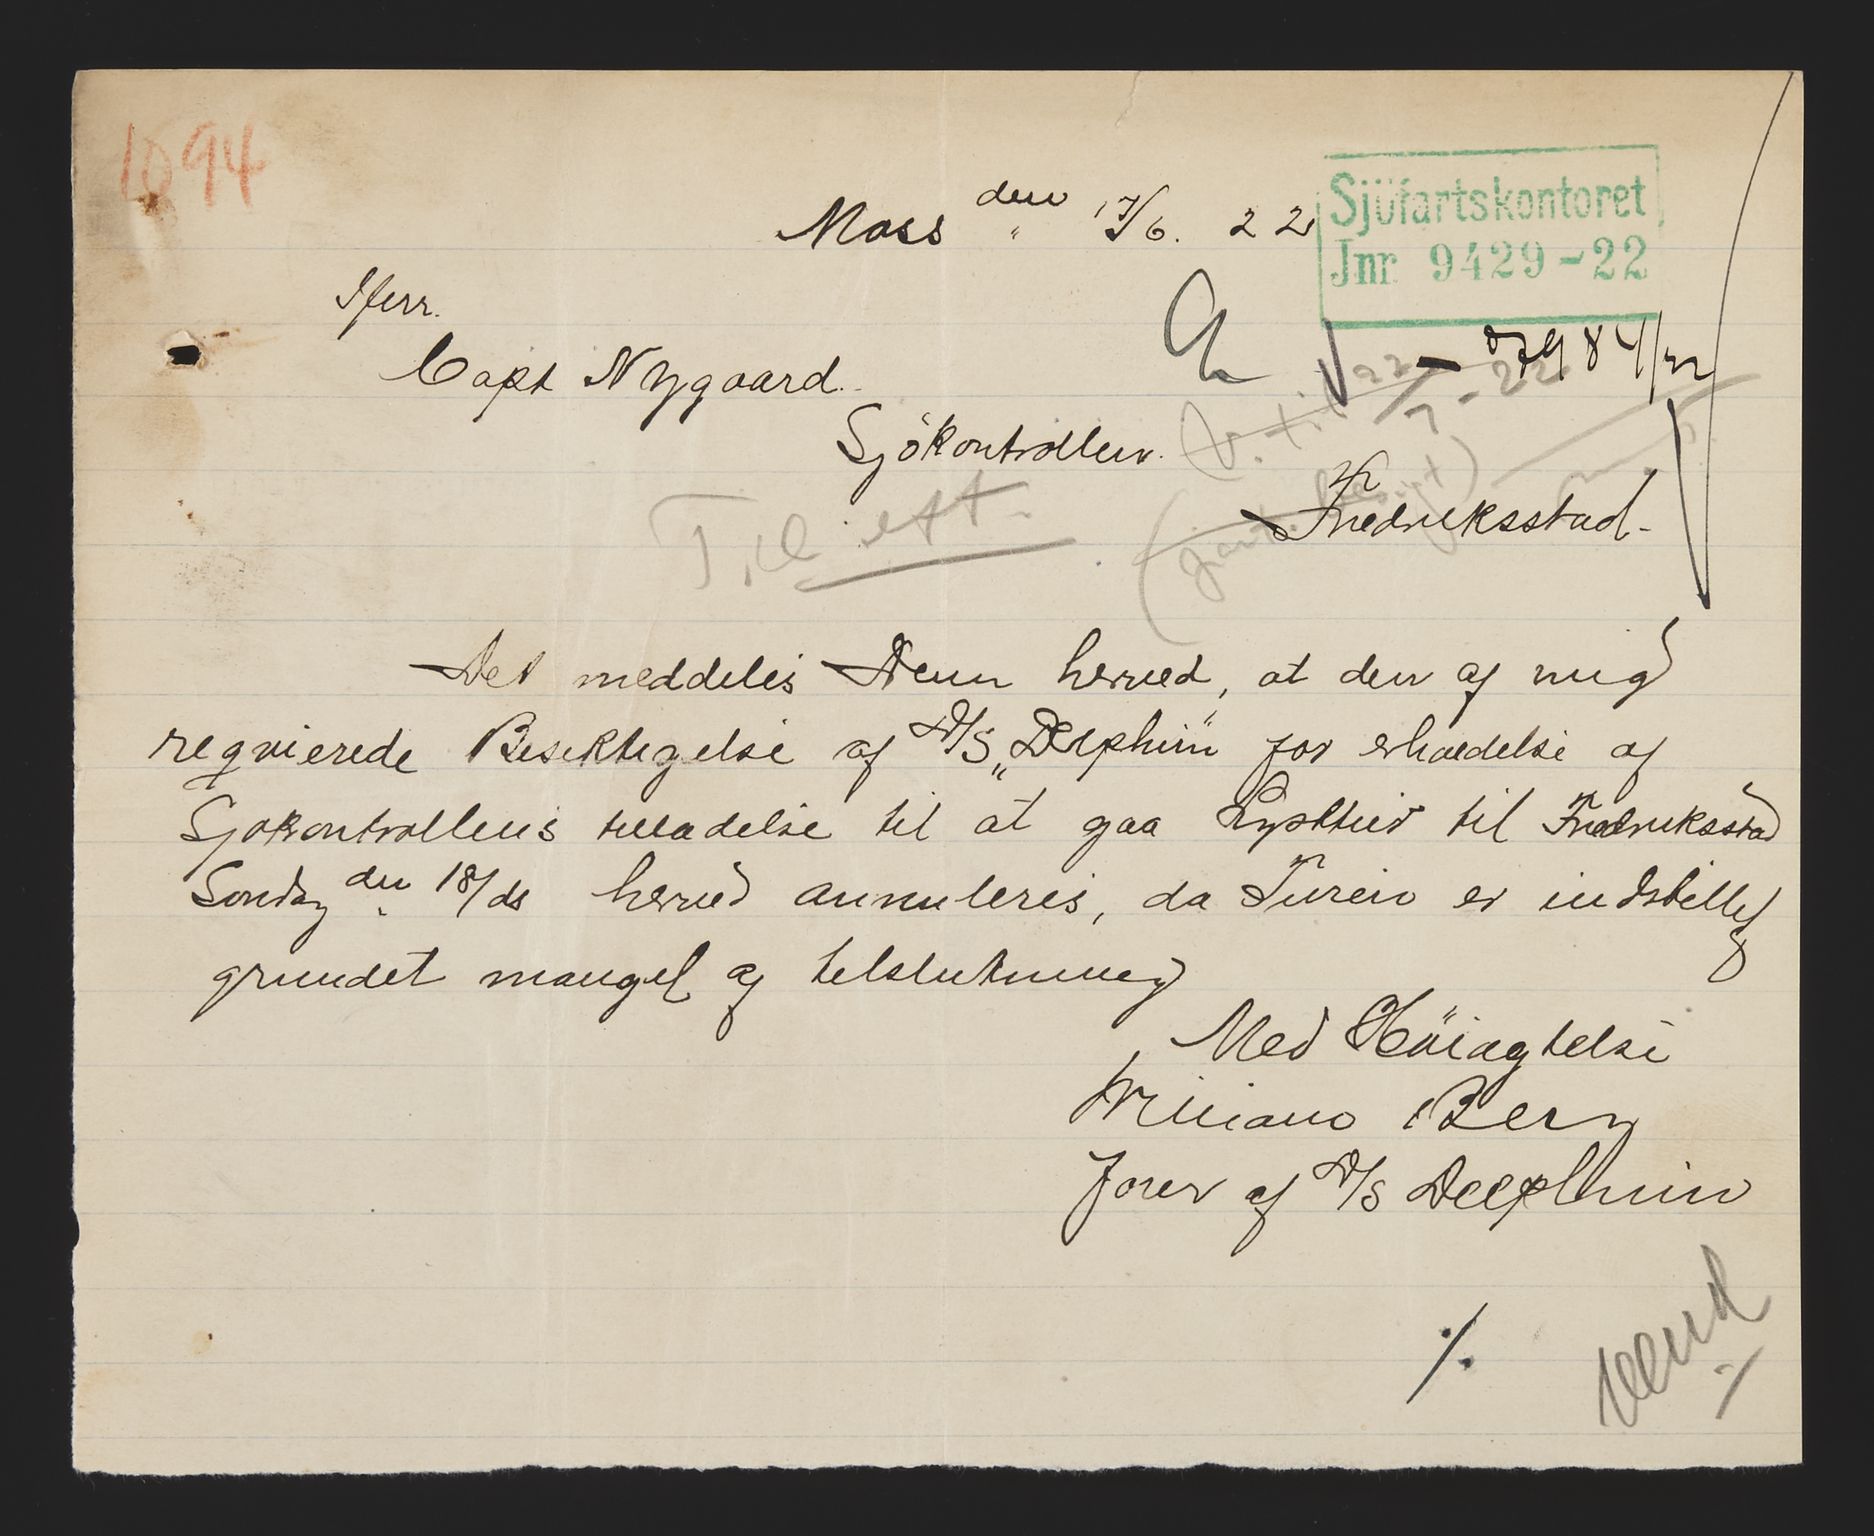 1094
Moss den 17/6. 22
Sjöfartskontoret
Jnr 9429-22
Herr.
Capt Nygaard.
Sjökontrollen.
Fredriksstad.
Til eft.
Det meddeles Dem herved, at den af mig
reqvierede Besiktigelse af D/S „Delphin" for erholdelse af
Sjøkontrollens tilladelse til at gaa Lysttur til Fredriksstad
Sondag den 18/ds herved annuleres, da Turen er indstillet
grundet mangel af tilslutning
Med Höiagtelse
William Berg
Fører af D/S Delphin
./.
Vend